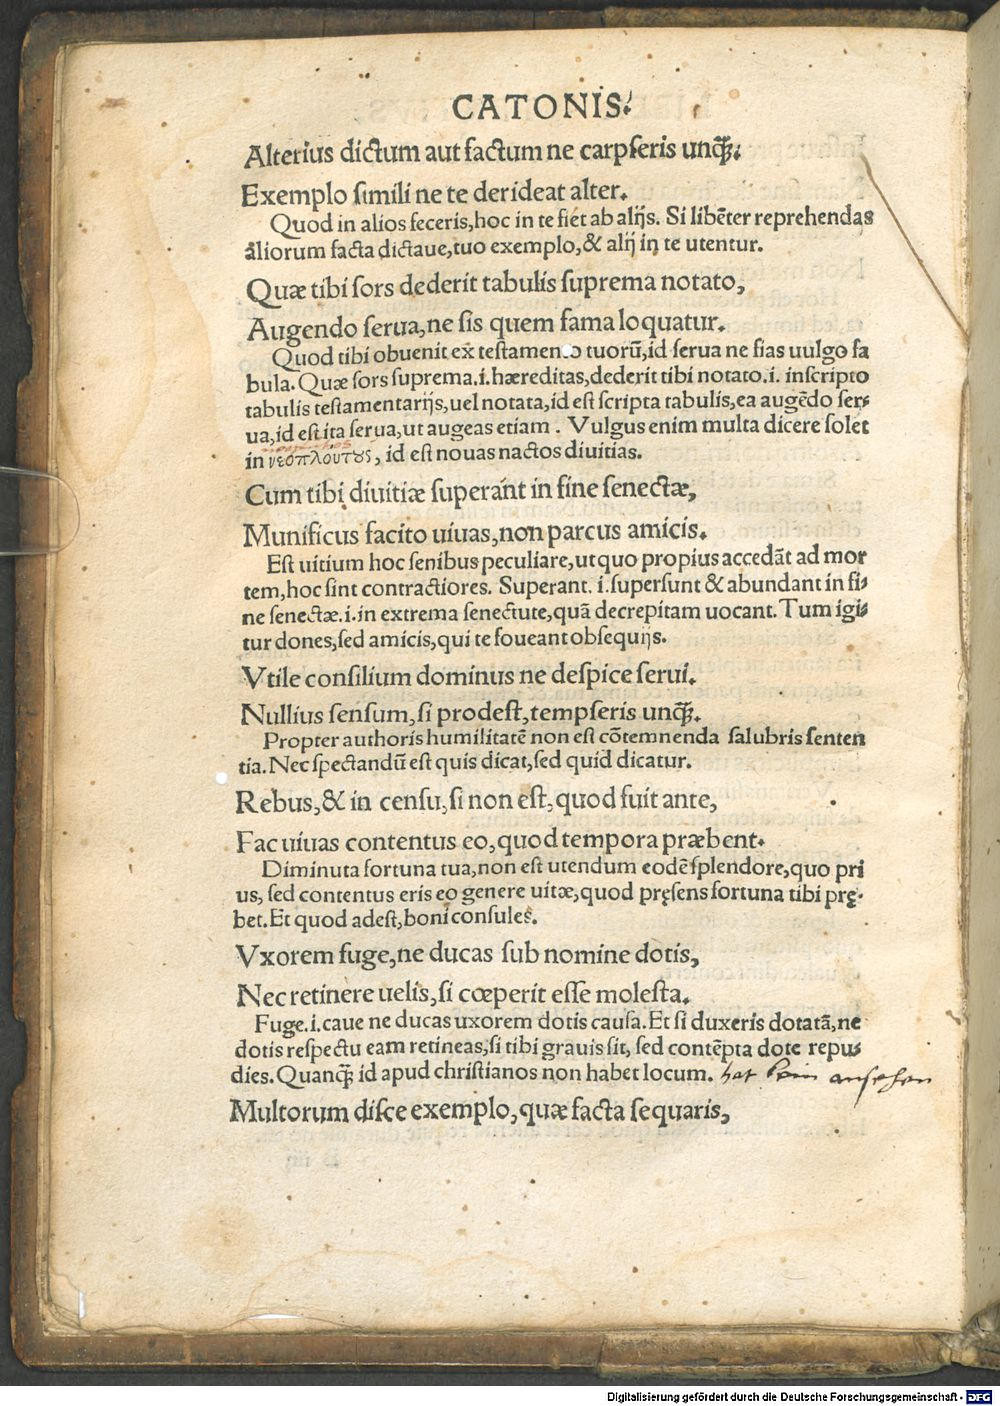 CATONIS.
Alterius dictum aut factum ne carpseris unꝗ̃.
Exemplo simili ne te derideat alter.
Quod in alios feceris, hoc in te fiet ab alijs. Si libēter reprehendas
aliorum facta dictaue, tuo exemplo, & alij in te utentur.
Quæ tibi sors dederit tabulis suprema notato,
Augendo serua, ne sis quem fama loquatur.
Quod tibi obuenit ex testamento tuorū, id serua ne fias uulgo fa
bula. Quæ sors suprema .i. hæreditas, dederit tibi notato .i. inscripto
tabulis testamentarijs, uel notata, id est scripta tabulis, ea augēdo ser-
ua, id est ita serua, ut augeas etiam. Vulgus enim multa dicere solet
in νεοπλούτȣς, id est nouas nactos diuitias.
Cum tibi diuitiæ superant in fine senectæ,
Munificus facito uiuas, non parcus amicis.
Est uitium hoc senibus peculiare, ut quo propius accedāt ad mor
tem, hoc sint contractiores. Superant .i. supersunt & abundant in fi-
ne senectæ .i. in extrema senectute, quā decrepitam uocant. Tum igi-
tur dones, sed amicis, qui te foueant obsequijs.
Vtile consilium dominus ne despice serui.
Nullius sensum, si prodest, tempseris unꝗ̃.
Propter authoris humilitatē non est cōtemnenda salubris senten
tia. Nec spectandū est quis dicat, sed quid dicatur.
Rebus, & in censu, si non est, quod fuit ante,
Fac uiuas contentus eo, quod tempora præbent.
Diminuta fortuna tua, non est utendum eodē splendore, quo pri
us, sed contentus eris eo genere uitæ, quod pręsens fortuna tibi prę-
bet. Et quod adest, boni consules.
Vxorem fuge, ne ducas sub nomine dotis,
Nec retinere uelis, si cœperit esse molesta.
Fuge .i. caue ne ducas uxorem dotis causa. Et si duxeris dotatā, ne
dotis respectu eam retineas, si tibi grauis sit, sed contēpta dote repu-
dies. Quanꝗ̃ id apud christianos non habet locum. hat kein ansehen
Multorum disce exemplo, quæ facta sequaris,
Digitalisierung gefördert durch die Deutsche Forschungsgemeinschaft - DFG